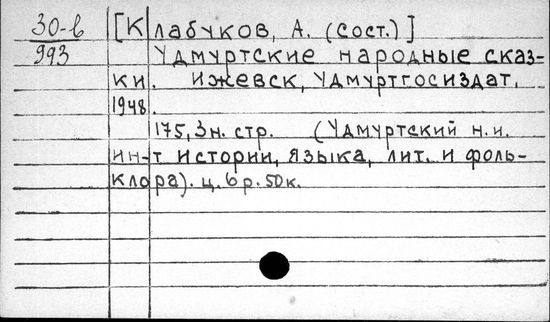 30-в [Клабуков, А. (сост.)]
993 Удмуртские народные сказ-
ки. Ижевск, Удмуртгосиздат,
1948.
175, 3 н. стр. (Удмуртский н.и.
ин-т истории, языка, лит. и фоль-
клора). ц. 6 р. 50 к.